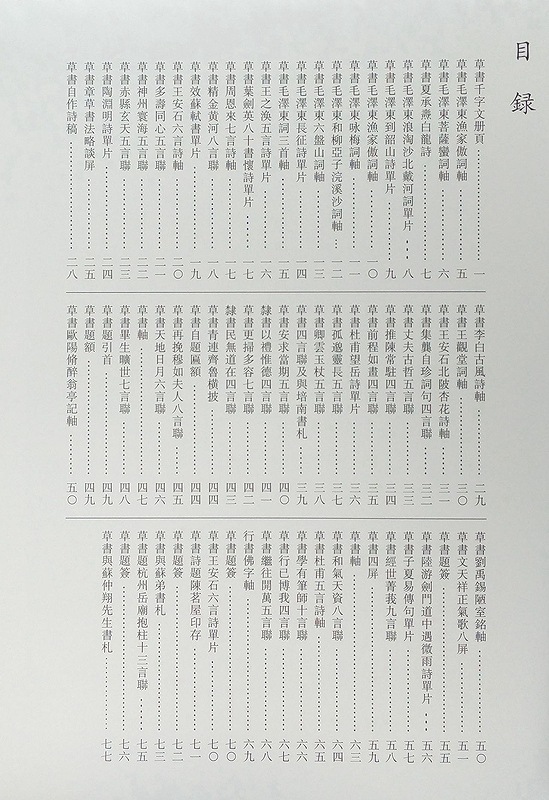 目錄
草書千字文册頁……一
草書毛澤東漁家傲詞軸……五
草書毛澤東菩薩蠻詞軸……六
草書夏承燾白龍詩……七
草書毛澤東浪淘沙北戴河詞單片……八
草書毛澤東到韶山詩單片……九
草書毛澤東漁家傲詞軸……一〇
草書毛澤東咏梅詞軸……一一
草書毛澤東和柳亞子浣溪沙詞軸……一二
草書毛澤東六盤山詞軸……一三
草書毛澤東長征詩單片……一四
草書毛澤東詞三首軸……一五
草書王之涣五言詩單片……一六
草書葉劍英八十書懷詩單片……一七
草書周恩來七言詩軸……一七
草書精金黃河八言聯……一八
草書效蘇軾書單片……一九
草書王安石六言詩軸……二〇
草書多壽同心五言聯……二一
草書神州寰海五言聯……二二
草書赤縣玄天五言聯……二三
草書陶淵明詩軸……二四
草書章草書法略談屏……二五
草書自作詩稿……二八
草書李白古風詩軸……二九
草書王觀堂詞軸……三〇
草書王安石北陂杏花詩軸……三一
草書集龔自珍詞句四言聯……三二
草書丈夫古哲五言聯……三三
草書推陳常駐四言聯……三四
草書前程如畫四言聯……三五
草書杜甫望岳詩單片……三六
草書孤邈靈長五言聯……三七
草書卿雲玉杖五言聯……三八
草書四言聯及與培南書札……三九
草書安求當期五言聯……四〇
隸書以禮惟德四言聯……四一
草書更掃多容七言聯……四二
隸書民無道在四言聯……四三
草書青連齊魯横披……四四
草書自題匾額……四四
草書再挽穆如夫人八言聯……四五
草書天地日月六言聯……四六
草書軸……四七
草書畢生曠世七言聯……四八
草書題引首……四九
草書題額……四九
草書歐陽脩醉翁亭記軸……五〇
草書劉禹錫陋室銘軸……五〇
草書文天祥正氣歌八屏……五一
草書題簽……五五
草書陸游劍門道中遇微雨詩單片……五六
草書子夏易傳句單片……五七
草書經世菁莪九言聯……五八
草書四屏……五九
草書軸……六三
草書和氣天資八言聯……六四
草書杜甫五言詩軸……六五
草書行已博我四言聯……六六
草書學有筆師十言聯……六七
草書繼往開萬五言聯……六八
行書佛字軸……六九
草書題簽……七〇
草書王安石六言詩單片……七〇
草書詩題陳茗屋印存……七一
草書題簽……七二
草書與蘇弟書札……七三
草書題杭州岳廟抱柱十三言聯……七五
草書題簽……七六
草書與蘇仲翔先生書札……七七